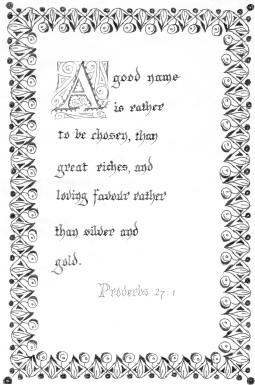 A good name
is rather
to be chosen, than
great riches, and
loving favour rather
than silver and
gold.
Proverbs 27:1